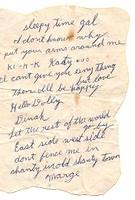 sleepy time gal
I dont know why
put your arms around me
K-K-K Katy ...
I cant give you anything
but love
Then Ill be happy
Hello Dolly
Dinah
Let the rest of the world
go by
East side west side
dont fence me in
shanty in old shanty town
Marge